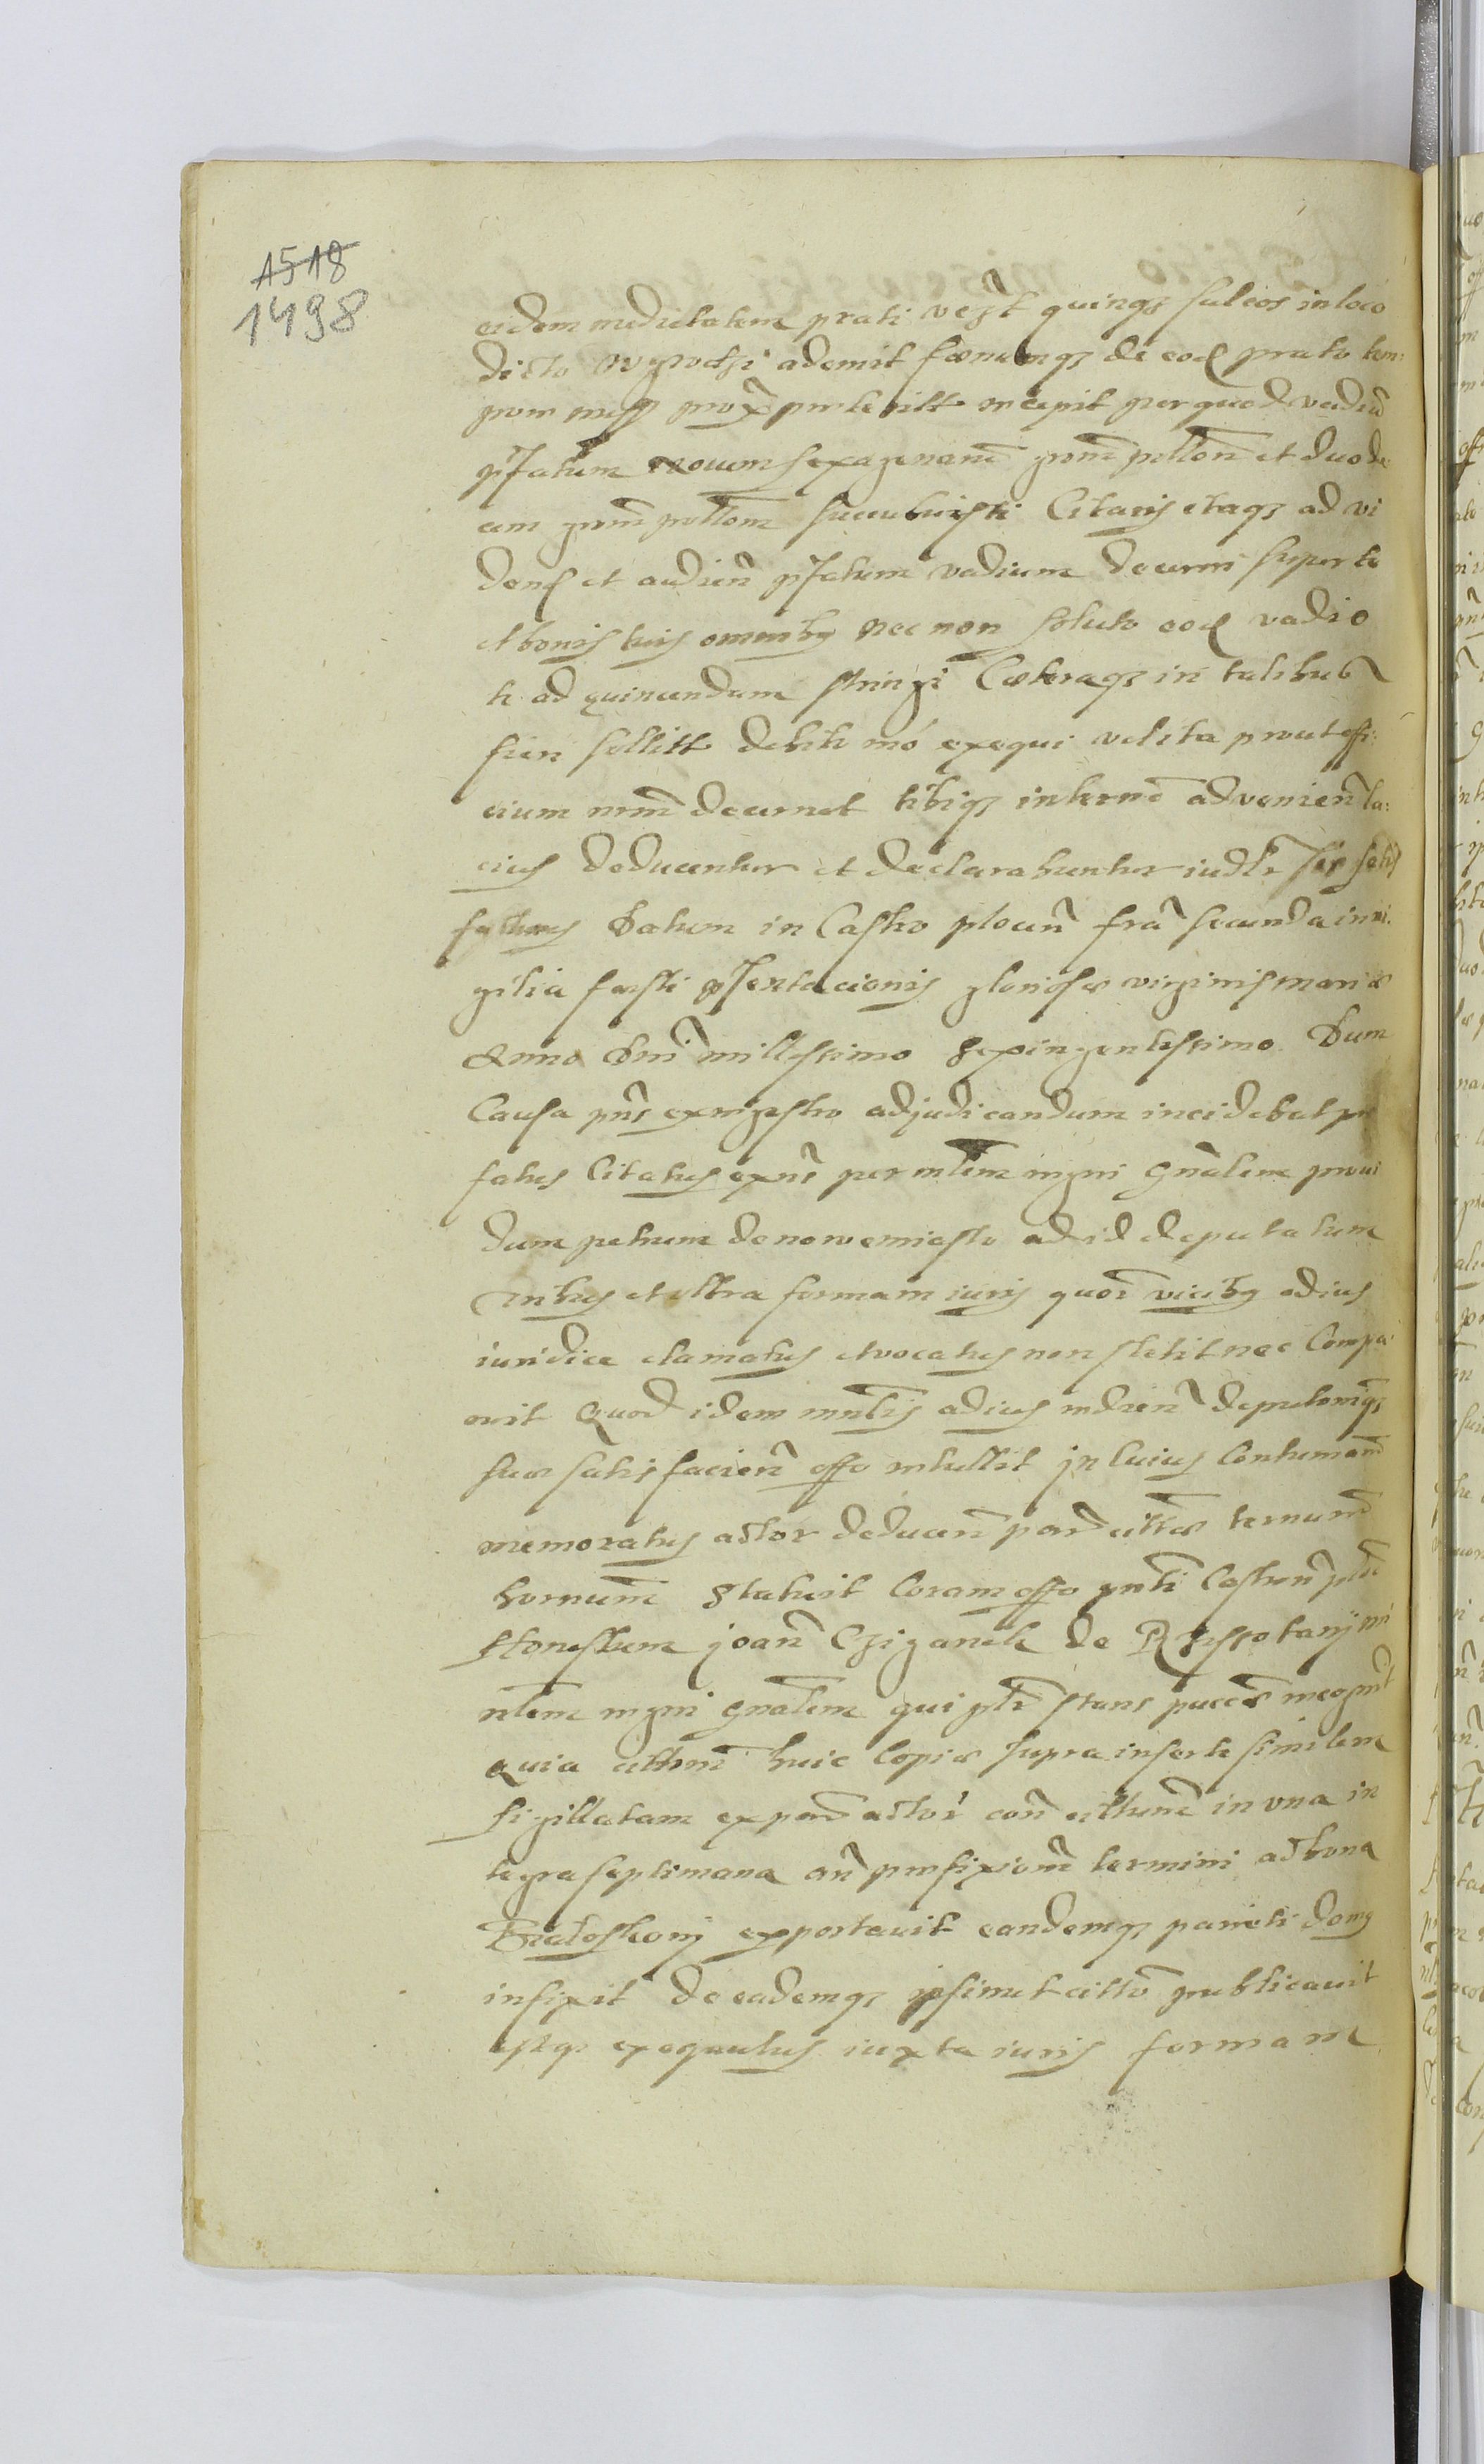 1518
1498
eidem medietatem prati videlt quinqz sulcos in loco
dicto Ogrodzi ademit foenumqz de eod prato tem:
pore messis prox praeterit recepit per quod vadiu
pfatum novem sexagenarū grm pllom et duode
cim grm pollom succubuisti Citaris itaqz ad vi
dend et audien pfatum vadium decerni super te
et bonis tuis omnibg nec non soluto eod vadio
te ad quincendam stringi Coeteraqz in talibus
fieri sollitt debite mo exequi vel ita prout offi:
cium nrm decernet tibiqz in termō advenien la:
cius deducentur et declarabuntur iudtr ter satis
facturus Datum in Castro plocen fra secunda in vi:
gilia festi psentacionis gloriosae virginis mariae
Anno Dni millesimo sexingentesimo Dum
Causa pns ex regestro adjudicandum incidebat pre
fatus Citatus exns per mlem regni gnalem provi
dum petrum de nowemiasto ad id deputatum
trinbus et ultra formam iuris quor vicibg adius
iuridice clamatus et vocatus non stetit nec Compa
ruit Quod idem mnlis adius rediens deputoniqz
suae satisfacien offo retullit in cuius Contumam
memoratus actor deducen par cittae ternum
bornum statuit Coram offo gnti Castren plo
Honestum joan Cziganek de Rzissotarij mi
nlem regni gnalem qui ptr stans pucce recognt
quia cittom huic Copiae supra inserte similem
sigillatam ex parte actor con cittum in una in
tegra septimana an prefixiom termini ad bona
Bialoskory exportavit eandemqz parieti domg
infixit de eademqz ipsimet citto publicavit
estqz exequutus iuxta iuris formam